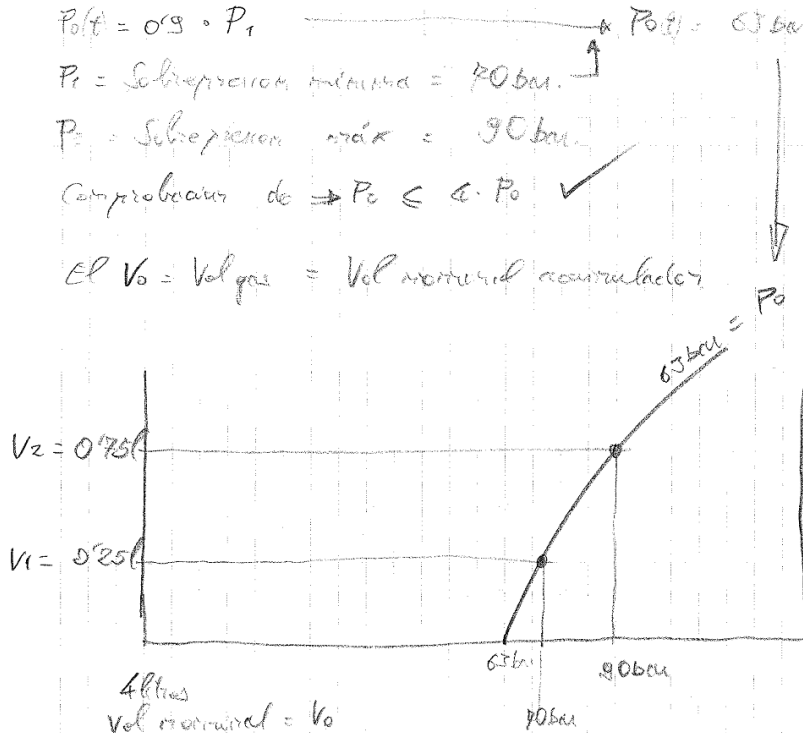 P₀(t) = 0'9 · P₁ → P₀(t) = 63 bar
P₁ = Sobrepresion minima = 70 bar.
P₂ = Sobrepresion máx = 90 bar.
Comprobacion de ⇒ P₂ ≤ 4 · P₀ ✓
El V₀ = Vol gas = Vol nominal acumulador
63 bar = P₀
V₂ = 0'75 l
V₁ = 0'25 l
63 bar
90 bar
70 bar
4 litros
Vol nominal = V₀